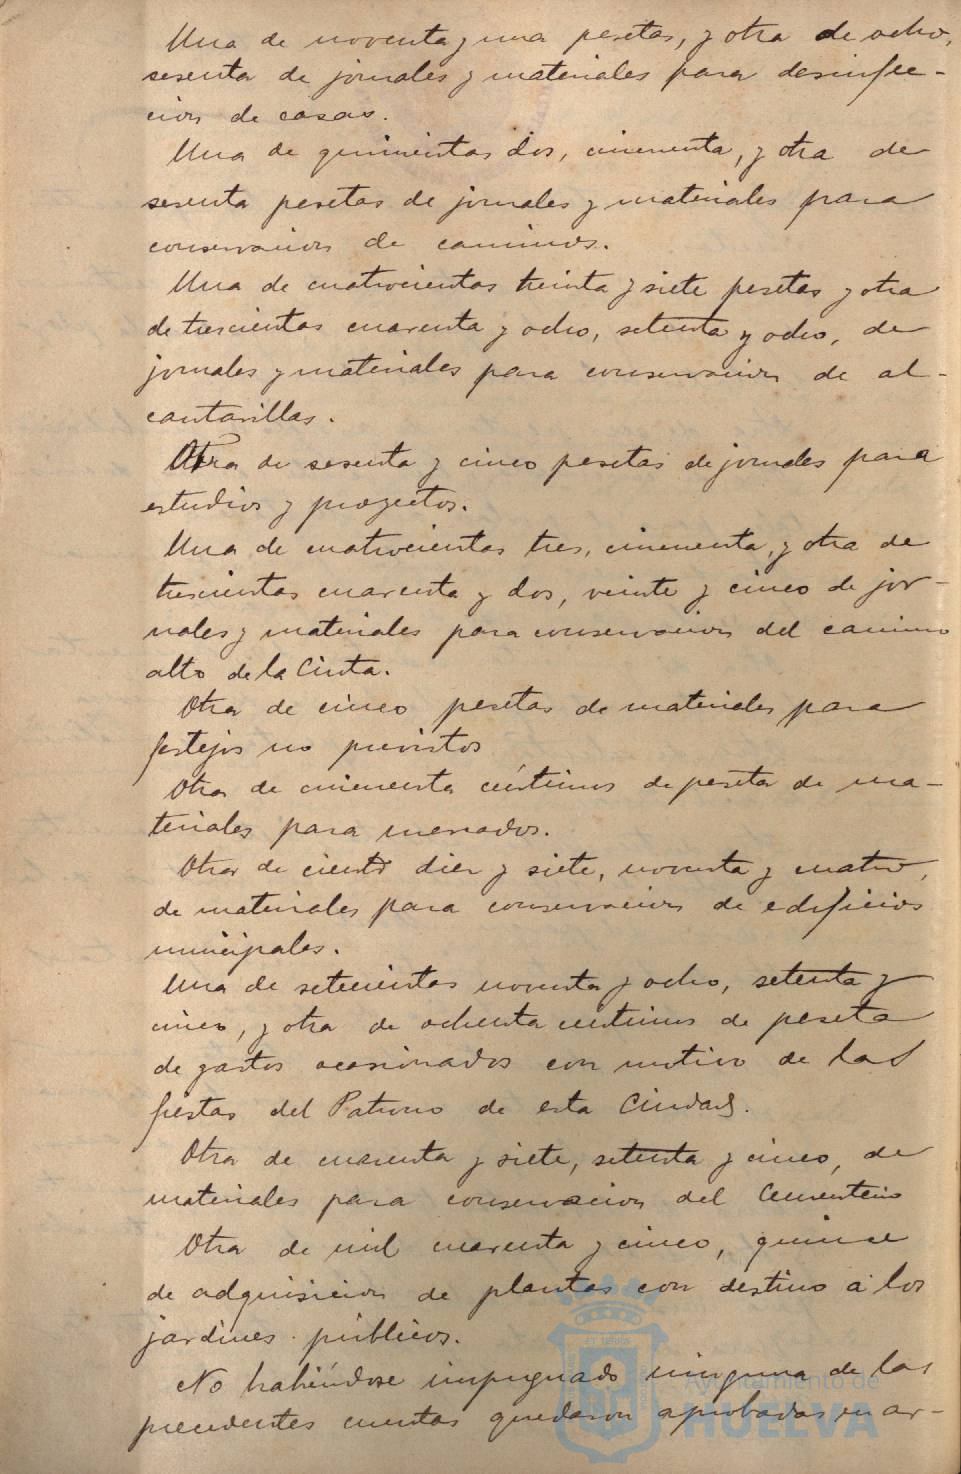 Una de noventa y una pesetas, y otra de ocho,
sesenta de jornales y materiales para desinfec-
cion de casas.
Una de quinientas dos, cincuenta, y otra de
sesenta pesetas de jornales y materiales para
conservacion de caminos.
Una de cuatrocientas treinta y siete pesetas y otra
de trescientas cuarenta y ocho, setenta y ocho, de
jornales y materiales para conservacion de al-
cantarillas.
Otra de sesenta y cinco pesetas de jornales para
estudios y proyectos.
Una de cuatrocientas tres, cincuenta, y otra de
trescientas cuarenta y dos, veinte y cinco de jor-
nales y materiales para conservacion del camino
alto de la Cinta.
Otra de cinco pesetas de materiales para
festejos no previstos
Otra de cincuenta céntimos de peseta de ma-
teriales para mercados.
Otra de ciento diez y siete, noventa y cuatro,
de materiales para conservacion de edificios
municipales.
Una de setecientas noventa y ocho, setenta y
cinco, y otra de ochenta centimos de peseta
de gastos ocasionados con motivo de las
fiestas del Patrono de esta Ciudad.
Otra de cuarenta y siete, setenta y cinco, de
materiales para conservacion del Cementerio
Otra de mil cuarenta y cinco, quince
de adquisicion de plantas con destino á los
jardines públicos.
No habiéndose impugnado ninguna de las
precedentes cuentas quedaron aprobadas en ar-
Ayuntamiento de
HUELVA